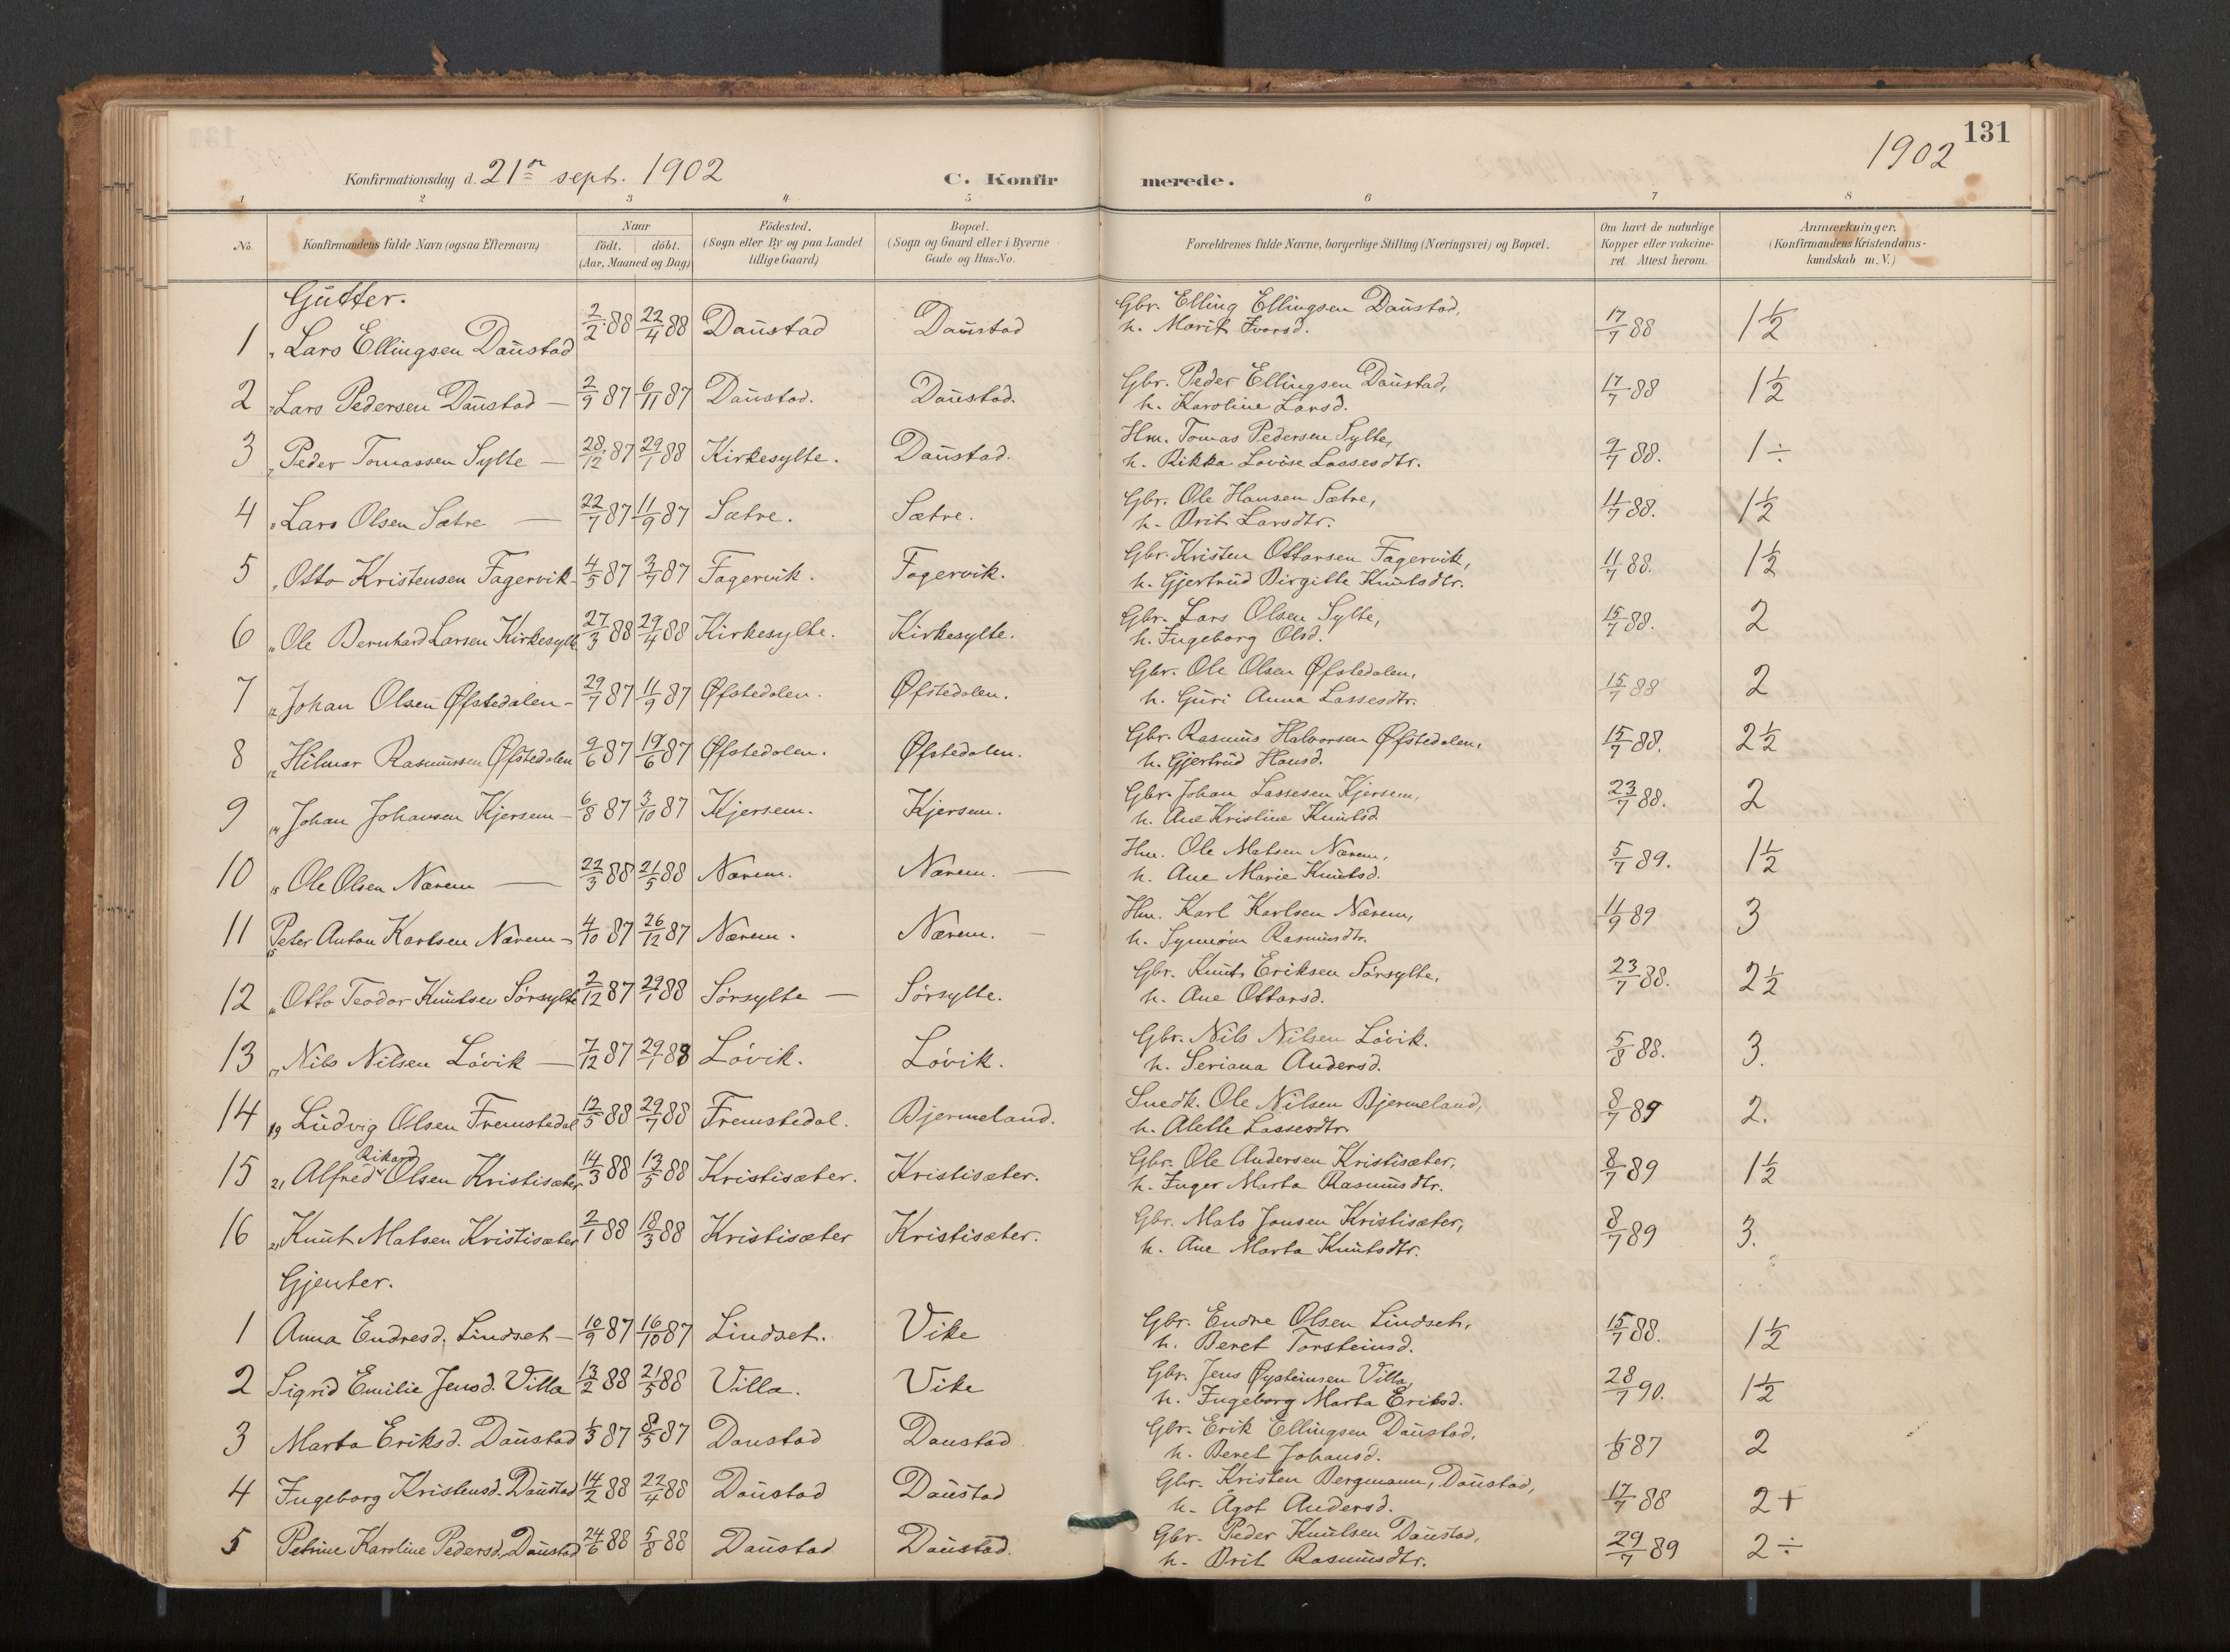 131
1902
Konfirmationsdag d. 21de sept. 1902
C. Konfirmerede.
1 2 3 4 5 6 7 8
No. Konfirmandens fulde Navn (ogsaa Efternavn) Naar födt. döbt. (Aar, Maaned og Dag) Födested. (Sogn eller By og paa Landet tillige Gaard) Bopæl. (Sogn og Gaard eller i Byerne Gade og Hus-No. Forældrenes fulde Navne, borgerlige Stilling (Næringsvei) og Bopæl. Om havt de naturlige Kopper eller vakcineret Attest herom. Anmærkninger, (Konfirmandens Kristendomskundskab m. V.)
Gutter.
1 Lars Ellingsen Daustad 2/2 88 22/4 88 Daustad Daustad Gbr. Elling Ellingsen Daustad, h. Marit Ivarsd. 17/7 88 1½
2 Lars Pedersen Daustad — 2/9 87 6/11 87 Daustad. Daustad. Gbr. Peder Ellingsen Daustad, h. Karoline Larsd. 17/7 88 1½
3 Peder Tomassen Sylte — 28/12 87 29/1 88 Kirkesylte. Daustad. Hm. Tomas Pedersen Sylte, h. Rikka Lovise Lassesdtr. 9/7 88. 1 ÷
4 Lars Olsen Sætre — 22/7 87 11/9 87 Sætre. Sætre. Gbr. Ole Hansen Sætre, h. Brit Larsdtr. 11/7 88. 1½
5 Otto Kristensen Fagervik 4/5 87 3/7 87 Fagervik. Fagervik. Gbr. Kristen Ottarsen Fagervik, h. Gjertrud Birgitte Knutsdtr. 11/7 88. 1½
6 Ole Bernhard Larsen Kirkesylte 27/3 88 29/4 88 Kirkesylte. Kirkesylte. Gbr. Lars Olsen Sylte, h. Ingeborg Olsd. 15/7 88. 2
7 Johan Olsen Øfstedalen - 29/7 87 11/9 87 Øfstedalen. Øfstedalen. Gbr. Ole Olsen Øfstedalen, h. Guri Anna Lassesdtr. 15/7 88 2
8 Hilmar Rasmussen Øfstedalen 9/6 87 19/6 87 Øfstedalen. Øfstedalen. Gbr. Rasmus Halvorsen Øfstedalen, h. Gjertrud Hansd. 15/7 88. 2½
9 Johan Johansen Kjersem - 6/8 87 3/10 87 Kjersem. Kjersem. Gbr. Johan Lassesen Kjersem, h. Ane Kristine Knutsd. 23/7 88. 2
10 Ole Olsen Nærem — 22/3 88 21/5 88 Nærem. Nærem. — Hm. Ole Matsen Nærem, h. Ane Marie Knutsd. 5/7 89. 1½
11 Peter Anton Karlsen Nærem - 4/10 87 26/12 87 Nærem. Nærem. — Hm. Karl Karlsen Nærem, h. Synnøva Rasmusdtr. 11/9 89 3
12 Otto Teodor Knutsen Sörsylte 2/12 87 29/1 88 Sörsylte — Sörsylte. Gbr. Knut Eriksen Sörsylte, h. Ane Ottarsd. 23/7 88. 2½
13 Nils Nilsen Lövik — 7/12 87 29/1 88 Lövik. Lövik. Gbr. Nils Nilsen Lövik. h. Seriana Andersd. 5/8 88. 3.
14 19 Ludvig Olsen Fremstedal 12/5 88 29/7 88 Fremstedal. Bjermeland. Snedk. Ole Nilsen Bjermeland, h. Alette Lassesdtr. 8/7 89 2.
15 21 Alfred Rikard Olsen Kristisæter 14/3 88 13/5 88 Kristisæter. Kristisæter. Gbr. Ole Andersen Kristisæter, h. Inger Marta Rasmusdtr. 8/7 89 1½
16 21 Knut Matsen Kristisæter 2/1 88 18/3 88 Kristisæter Kristisæter. Gbr. Mats Jonsen Kristisæter, h. Ane Marta Knutsdtr. 8/7 89 3.
Gjenter.
1 Anna Endresd. Lindset — 10/9 87 16/10 87 Lindset. Vike Gbr. Endre Olsen Lindset, h. Beret Torsteinsd. 15/7 88. 1½
2 Sigrid Emilie Jensd. Villa 13/2 88 21/5 88 Villa. Vike Gbr. Jens Øysteinsen Villa, h. Ingeborg Marta Eriksd. 28/7 90. 1½
3 Marta Eriksd. Daustad 1/3 87 8/5 87 Daustad Daustad Gbr. Erik Ellingsen Daustad, h. Beret Johansd. 1/8 87 2
4 Ingeborg Kristensd. Daustad 14/2 88 22/4 88 Daustad Daustad Gbr. Kristen Bergmann, Daustad, h. Ågot Andersd. 17/7 88 2 +
5 Petrine Karoline Pedersd. Daustad 24/6 88 5/8 88 Daustad Daustad. Gbr. Peder Knutsen Daustad, h. Brit Rasmusdtr. 29/7 89 2 ÷